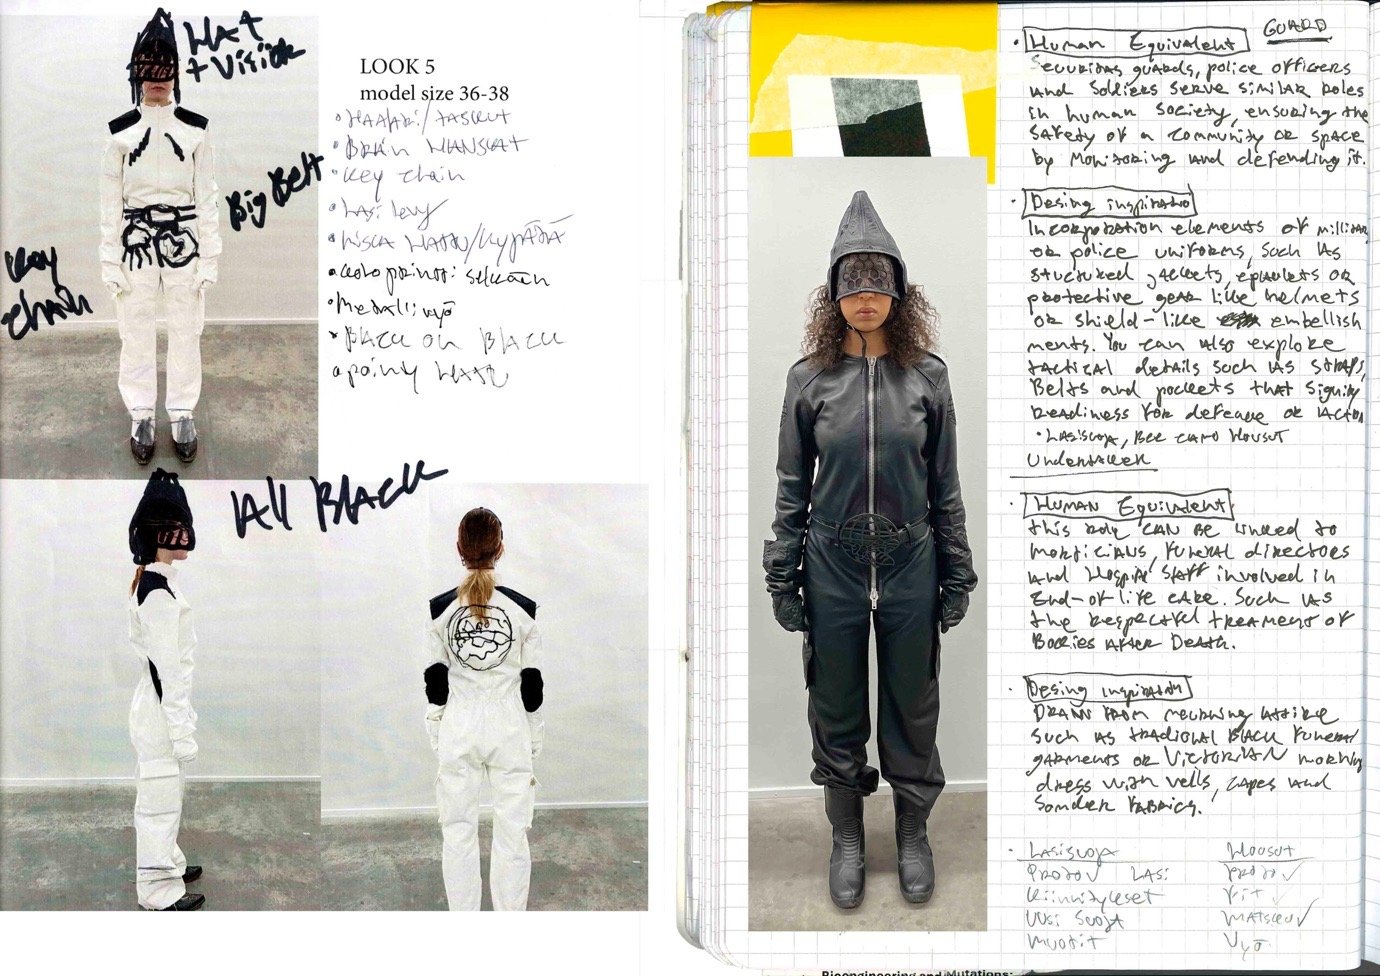 HAT
+ Vision
Big Belt
Key
chain
All BLACK
LOOK 5
model size 36-38
• key chain
• Logo printti: selkään
• Metalli vyö
• BLACK ON BLACK
GUARD
• Human Equivalent
Securitas guards, police officers
and soldiers serve similar roles
in human society, ensuring the
safety of a community or space
by monitoring and defending it.
• Desing inspiratio
Incorporation elements of militar
or police uniforms, such as
structured jackets, epaulets or
protective gear like helmets
or shield-like embellish
ments. You can also explore
tactical details such as straps,
Belts and pockets that signify
readiness for defence or action
• Lasisuoja, Bee camo Housut
Undertaker
• Human Equivalent
This role can be linked to
morticians, funeral directors
and Hospital staff involved in
End-of-life care. Such as
the respectful treament of
Bodies after Death.
• Desing inspiration
Draw from mourning attire
such as tradional Black funeral
garments or Victorian morning
dress with veils, capes and
somber fabrics.
• Lasisuoja Housut
Proto ✓ Lasi proto ✓
Kiinnitykset Fit ✓
Uusi Suoja
muotit Vyö
Bioengineering and Mutations: